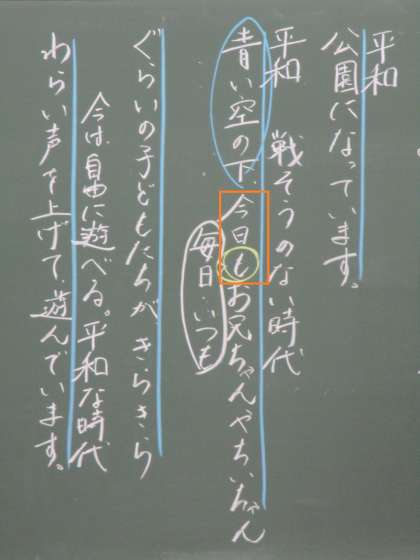 平和
公園になっています。
平和 戦そうのない時代
青い空の下、今日もお兄ちゃんやちいちゃん
毎日・いつも
ぐらいの子どもたちが、きらきら
今は自由に遊べる。平和な時代
わらい声を上げて、遊んでいます。